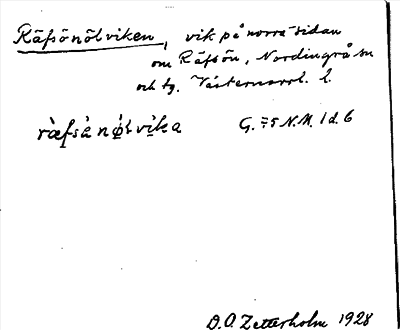 Räfsönölviken, vik på norra sidan
om Räfsön, Nordingrå sn
och tg. Västernorrl. l.
ràfsà nø̀lvìka G. 5 N.M. 1 d. 6
D.O. Zetterholm 1928